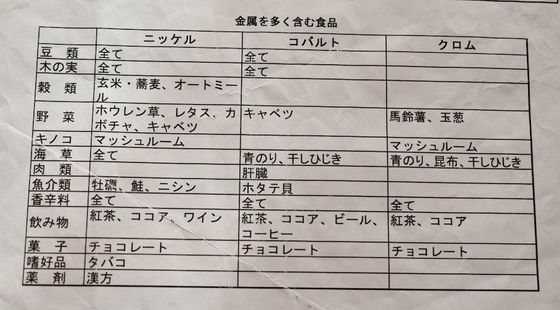 金属を多く含む食品
ニッケル コバルト クロム
豆 類 全て 全て
木の実 全て 全て
穀 類 玄米・蕎麦、オートミー
ル
野 菜 ホウレン草、レタス、カ キャベツ 馬鈴薯、玉葱
ボチャ、キャベツ
キノコ マッシュルーム マッシュルーム
海 草 全て 青のり、干しひじき 青のり、昆布、干しひじき
肉 類 肝臓
魚介類 牡蠣、鮭、ニシン ホタテ貝
香辛料 全て 全て 全て
飲み物 紅茶、ココア、ワイン 紅茶、ココア、ビール、 紅茶、ココア
コーヒー
菓 子 チョコレート チョコレート チョコレート
嗜好品 タバコ
薬 剤 漢方